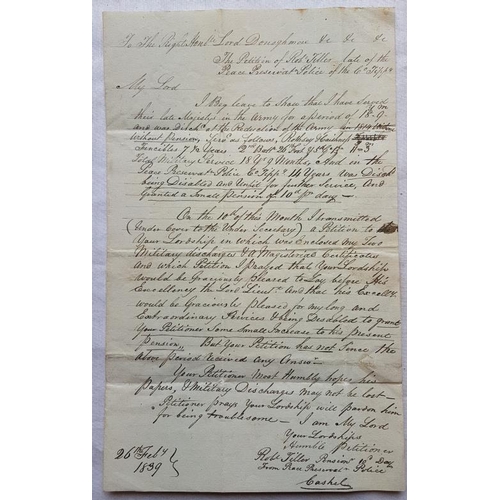 To The Right Honble Lord Donoghmore &c &c &c
The Petition of Robt Tiller, late of the
Peace Preservat Police of the Co Tippy
My Lord
I Beg leave to State that I have Served
their late Majesty in the Army for a period of 18 9
and was Dischd at the Reduction of the Army in 1819
without Pension,
Fencibles 7 Years 2nd Batt 26 Foot
Total Military Service 18 Yrs 9 Months, And in the
Peace Preservat Police Co Tippy 14 Years was Dischd
being Disabled and Unfit for further Service, And
Granted a Small Pension of 10d pr day
On the 10th of this Month I transmitted
(Under Cover to the Under Secretary) a Petition to
Your Lordship in which was Enclosed my Two
Military discharges & Magisterial Certificates
And which Petition I prayed that Your Lordship
would be Graciously Pleased to Lay before His
Excellency the Lord Lieut And that his Excelly
would be Graciously pleased for my long and
Extraordinary Services & being Disabled to grant
Your Petitioner Some Small Increase to his present
Pension. But Your Petition has not Since the
above period received any Answr
Your Petitioner Most Humbly hopes his
Papers, & Military Discharges may not be lost
Petitioner prays Your Lordship will pardon him
for being troublesome - I am My Lord
Your Lordships
Humble Petitioner
26th Feby 1839
Robt Tiller Pensionr 10d Day
From Peace Preservat Police
Cashel